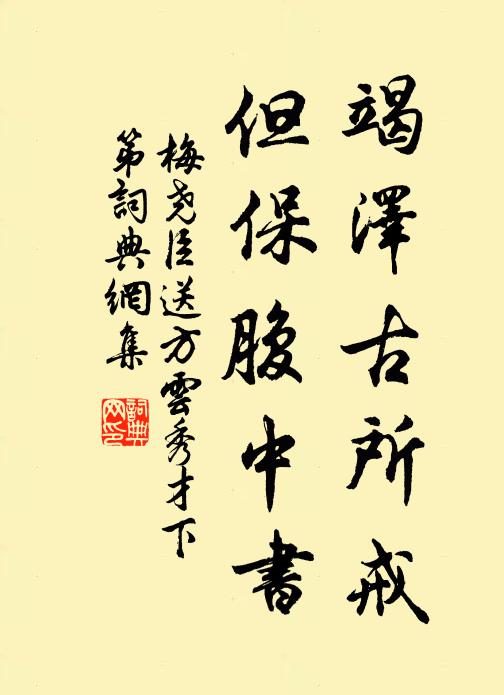 竭澤古所戒
但保腹中書
梅堯臣送方雲秀才下
第詞典網集
詞典
网印